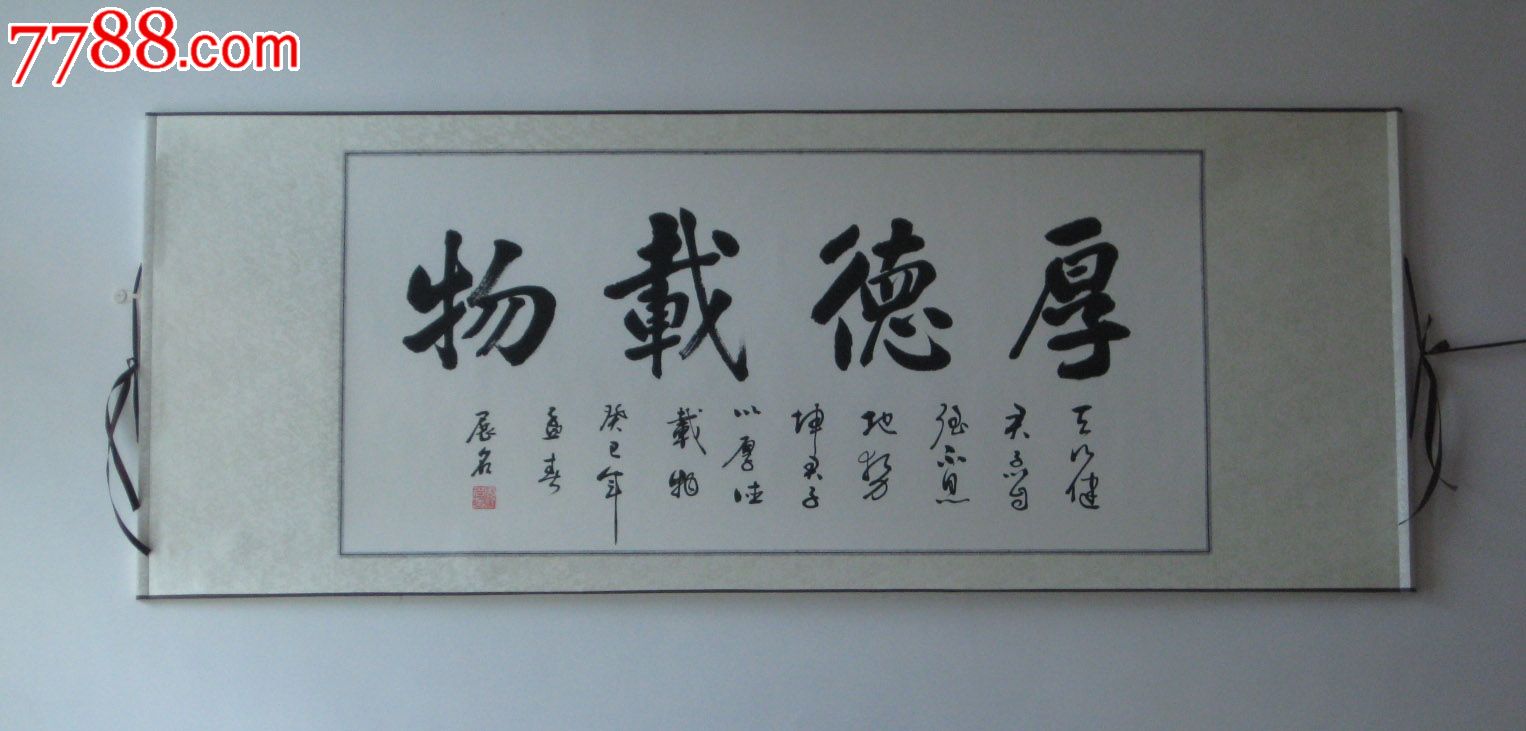 7788.com
厚德載物
天行健
君子自
强不息
地势
坤君子
以厚德
載物
癸巳年
孟春
展名